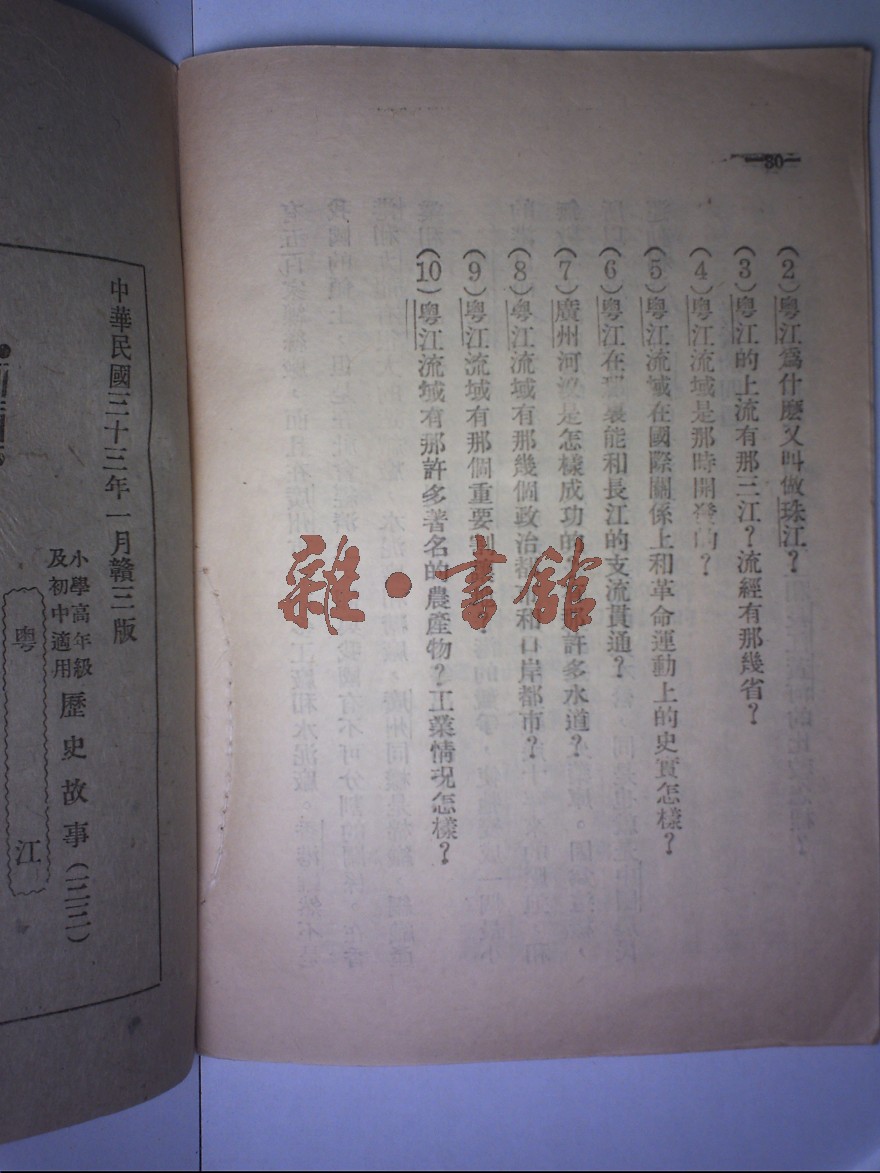 —30—
(2)粵江爲什麽又叫做珠江？
(3)粵江的上流有那三江？流經有那幾省？
(4)粵江流域是那時開發的？
(5)粵江流域在國際關係上和革命運動上的史實怎樣？
(6)粵江在那裏能和長江的支流貫通？
(7)廣州河汊是怎樣成功的？許多水道？
(8)粵江流域有那幾個政治都市和口岸都市？
(9)粵江流域有那個重要
(10)粵江流域有那許多著名的農產物？工業情況怎樣？
雜·書館
中華民國三十三年一月贛三版
小學高年級
及初中適用
歷史故事(一三三)
粵江